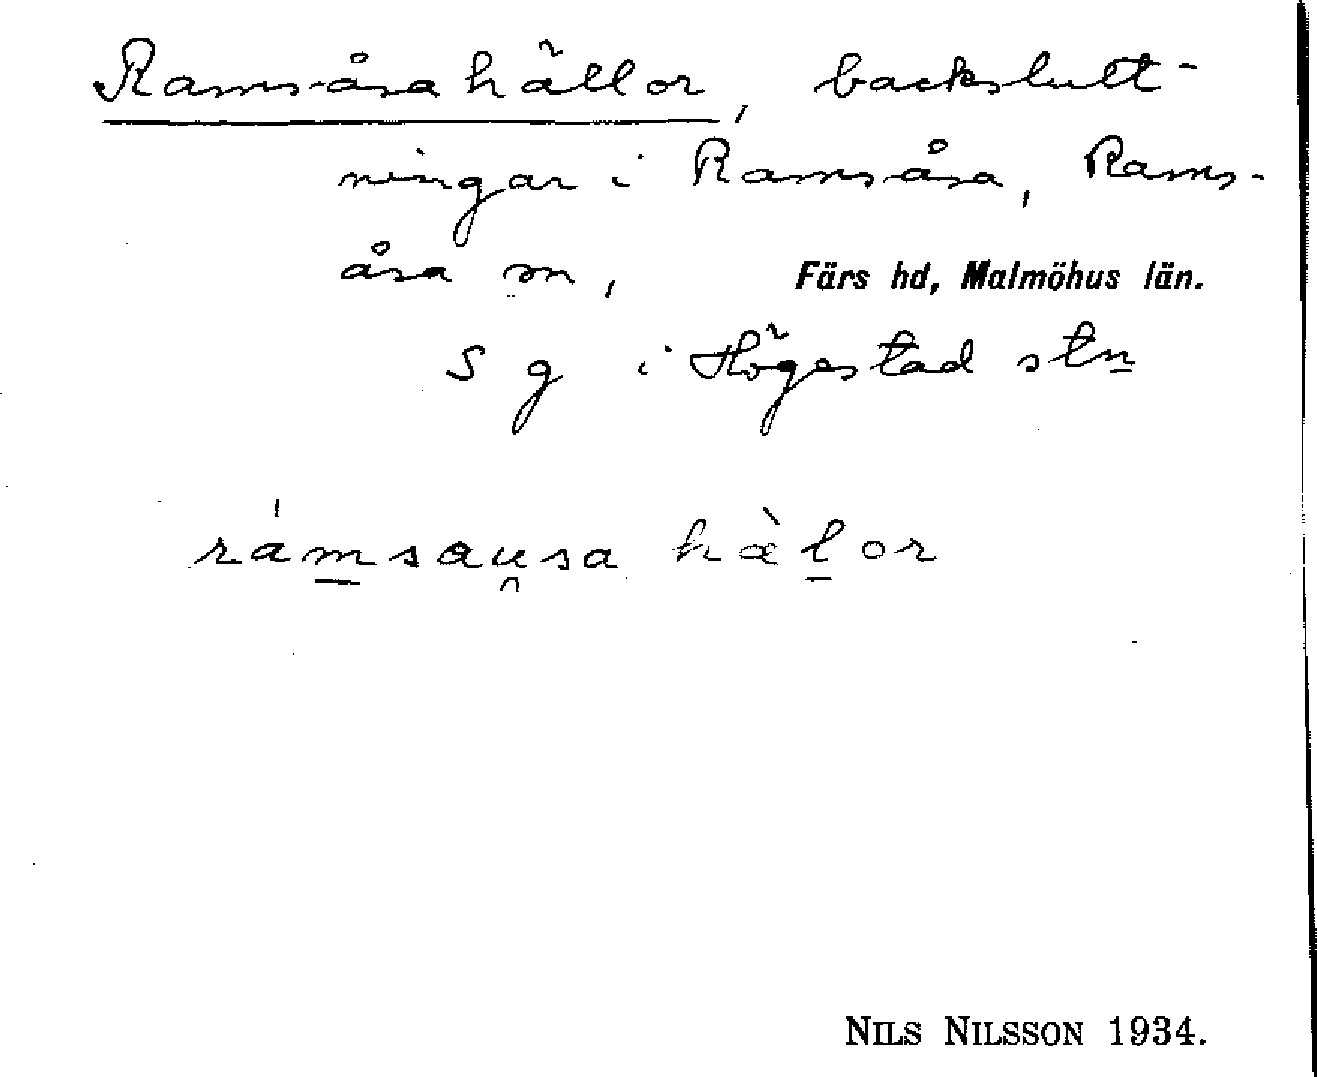 Ramsåsa hällor, backslutt-
ningar i Ramsåsa, Rams-
åsa sn, Färs hd, Malmöhus län.
S g i Högestad stn
rámsau̯sa hæ̀l̲or
NILS NILSSON 1934.